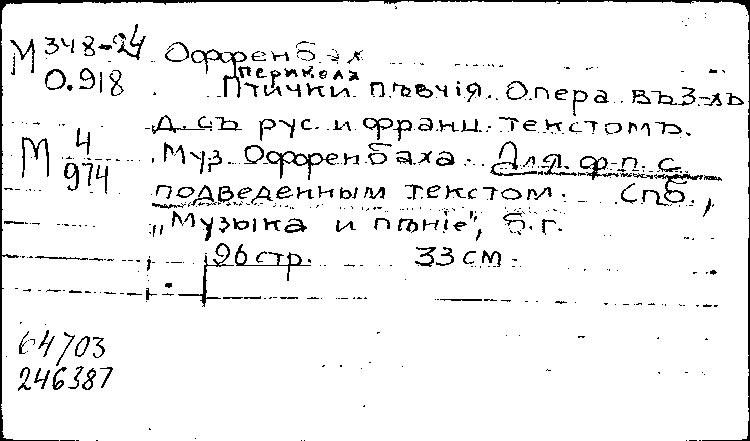 М 348-24 Оффенбах
О.918 Перикола
Птички пѣвчія. Опера въ 3-хъ
д. съ рус. и франц. текстомъ.
М 4/974 Муз. Оффенбаха. Для ф-п. с
подведенным текстом. Спб.,
„Музыка и пѣніе", б.г.
96 стр. 33 см.
64703
246387